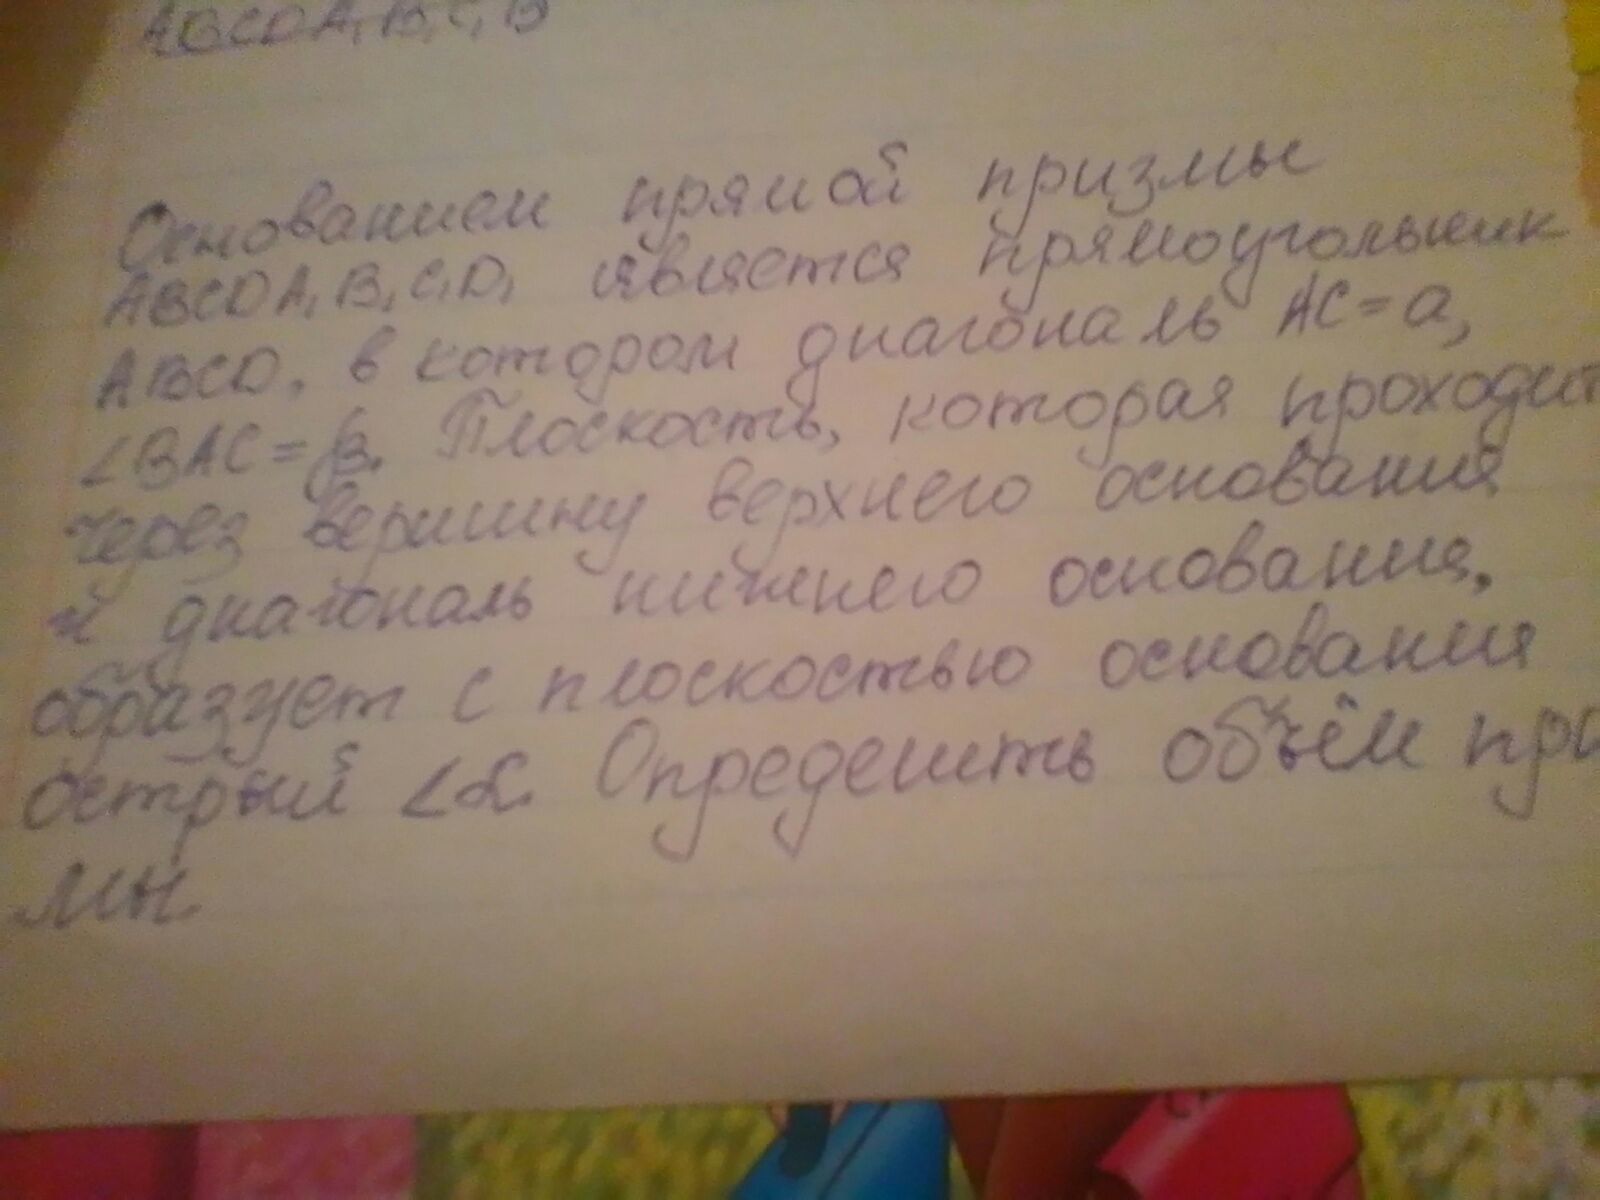 ABCDA, B, C, D
Основанием прямой призмы
ABCDA, B, C, D, является прямоугольник
ABCD, в котором диагональ AC=a,
∠BAC=β. Плоскость, которая проходит
через вершину верхнего основания
и диагональ нижнего основания,
образует с плоскостью основания
острый ∠α. Определить объём при
мы